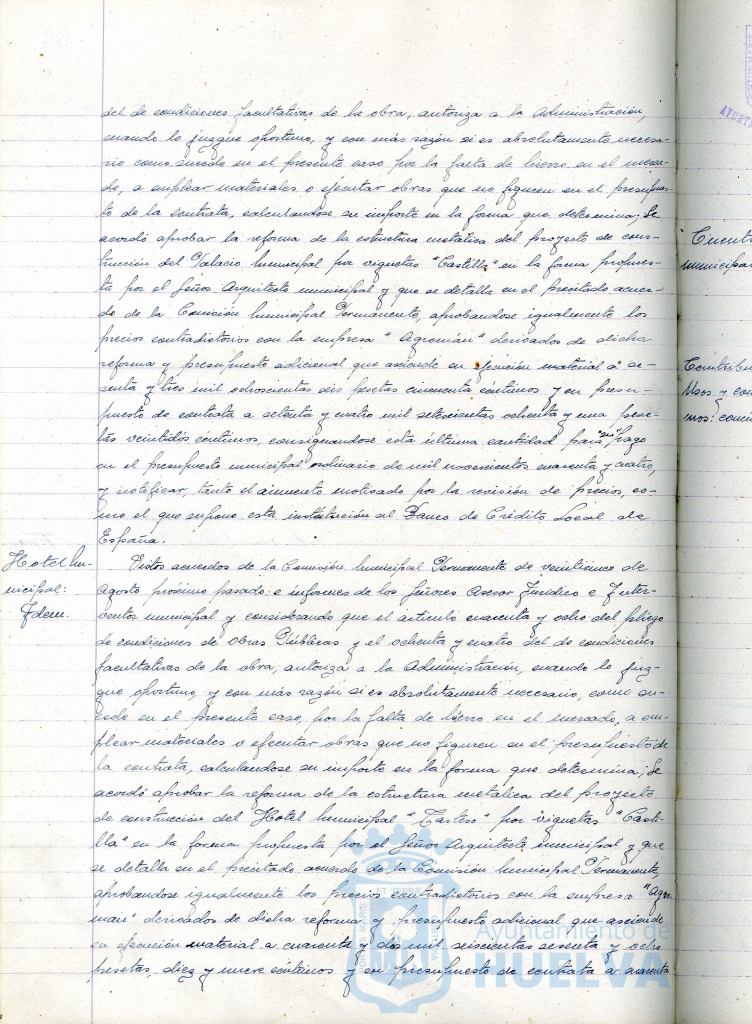 del de condiciones facultativas de la obra, autoriza a la Administración,
cuando lo juzgue oportuno, y con más razón si es absolutamente necesa-
rio como sucede en el presente caso por la falta de hierro en el merca-
do, a emplear materiales o ejecutar obras que no figuren en el presupues-
to de la contrata, calculandose su importe en la forma que determina; Se
acordó aprobar la reforma de la estructura metalica del proyecto de cons-
trucción del Palacio Municipal por viguetas "Castilla" en la forma propues-
ta por el Señor Arquitecto municipal y que se detalla en el precitado acuer-
do de la Comisión Municipal Permanente, aprobandose igualmente los
precios contradictorios con la empresa "Agroman" derivados de dicha
reforma y presupuesto adicional que asciende en ejecución material a se-
senta y tres mil ochocientas seis pesetas cincuenta céntimos y en presu-
puesto de contrata a setenta y cuatro mil setecientas ochenta y una pese-
tas veintidós céntimos, consignandose esta ultima cantidad para "su" pago
en el presupuesto municipal ordinario de mil novecientos cuarenta y cuatro,
y notificar, tanto el aumento motivado por la revisión de precios, co-
mo el que supone esta institución al Banco de Crédito Local de
España.
Hotel Mu-
nicipal:
Idem.
Vistos acuerdos de la Comisión Municipal Permanente de veinticinco de
Agosto próximo pasado e informes de los Señores Asesor Jurídico e Inter-
ventor municipal y considerando que el artículo cuarenta y ocho del pliego
de condiciones de Obras Públicas y el ochenta y cuatro del de condiciones
facultativas de la obra, autoriza a la Administración, cuando lo juz-
gue oportuno, y con más razón si es absolutamente necesario, como su-
cede en el presente caso, por la falta de hierro en el mercado, a em-
plear materiales o ejecutar obras que no figuren en el presupuesto de
la contrata, calculandose su importe en la forma que determina; Se
acordó aprobar la reforma de la estructura metalica del proyecto
de construcción del Hotel Municipal "Tarteso" por viguetas "Casti-
lla" en la forma propuesta por el Señor Arquitecto municipal y que
se detalla en el precitado acuerdo de la Comisión Municipal Permanente,
aprobandose igualmente los precios contradictorios con la empresa "Agro-
man" derivados de dicha reforma y presupuesto adicional que asciende
en ejecución material a cuarenta y dos mil seiscientas sesenta y ocho
pesetas, diez y nueve céntimos y en presupuesto de contrata a cuarenta
Ayuntamiento de
HUELVA
municipal
Usos y con